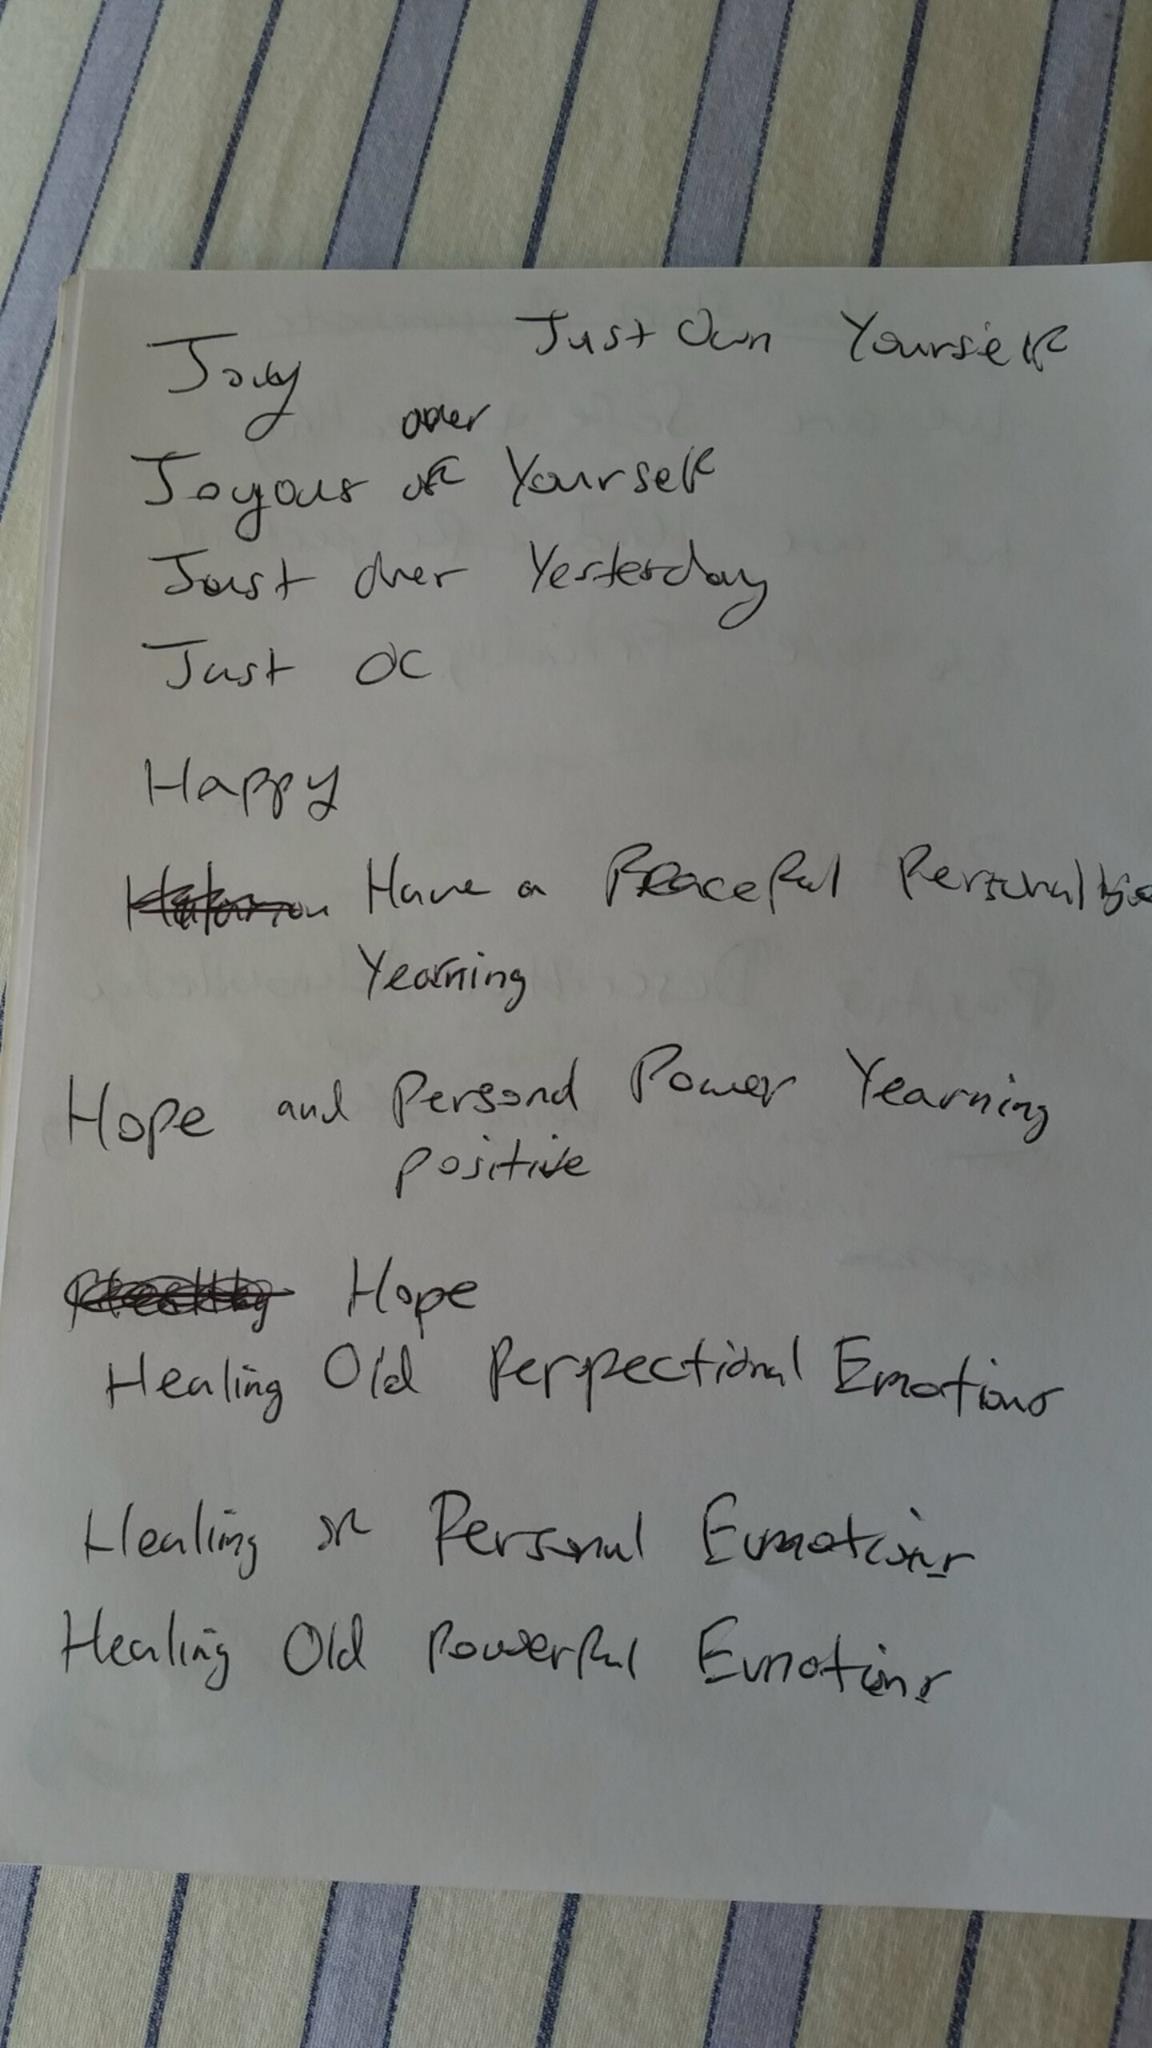 Joy Just Own Yourself
over
Joyous of Yourself
Just Over Yesterday
Just OK
Happy
Have a Peaceful
Yearning
Hope and Personal Power Yearning
positive
Hope
Healing Old Perpectional Emotions
Healing of Personal Emotions
Healing Old Powerful Emotions